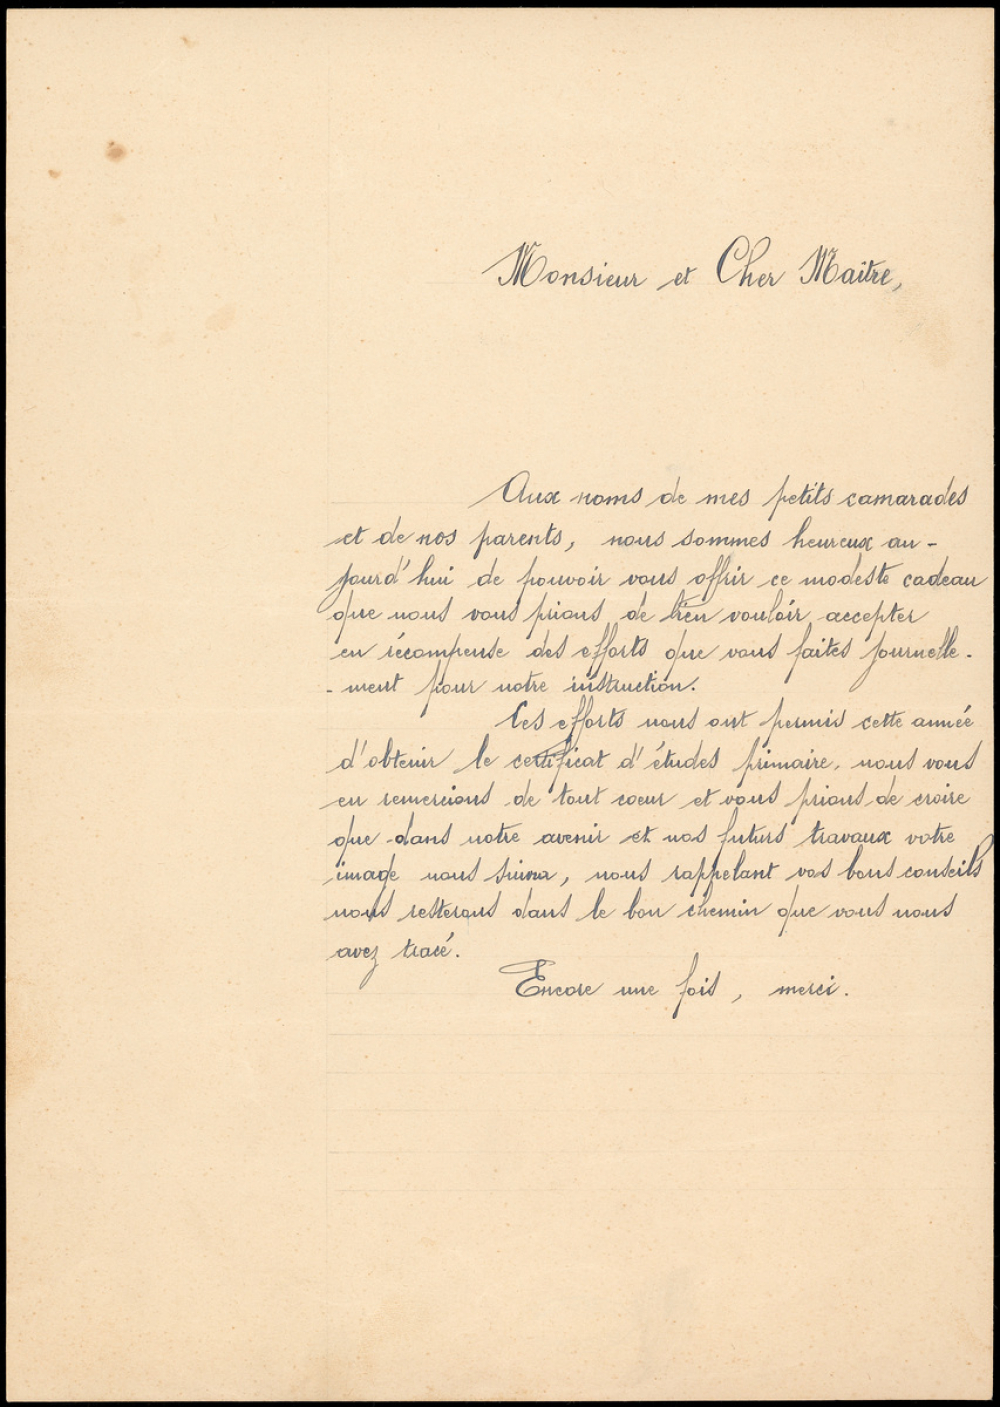 Monsieur et Cher Maître,
Aux noms de mes petits camarades
et de nos parents, nous sommes heureux au-
jourd'hui de pouvoir vous offrir ce modeste cadeau
que nous vous prions de bien vouloir accepter
en récompense des efforts que vous faites journelle-
-ment pour notre instruction.
Ces efforts nous ont permis cette année
d'obtenir le certificat d'études primaire. nous vous
en remercions de tout coeur et vous prions de croire
que dans notre avenir et nos futurs travaux votre
image nous suivra, nous rappelant vos bons conseils
nous resterons dans le bon chemin que vous nous
avez tracé.
Encore une fois, merci.